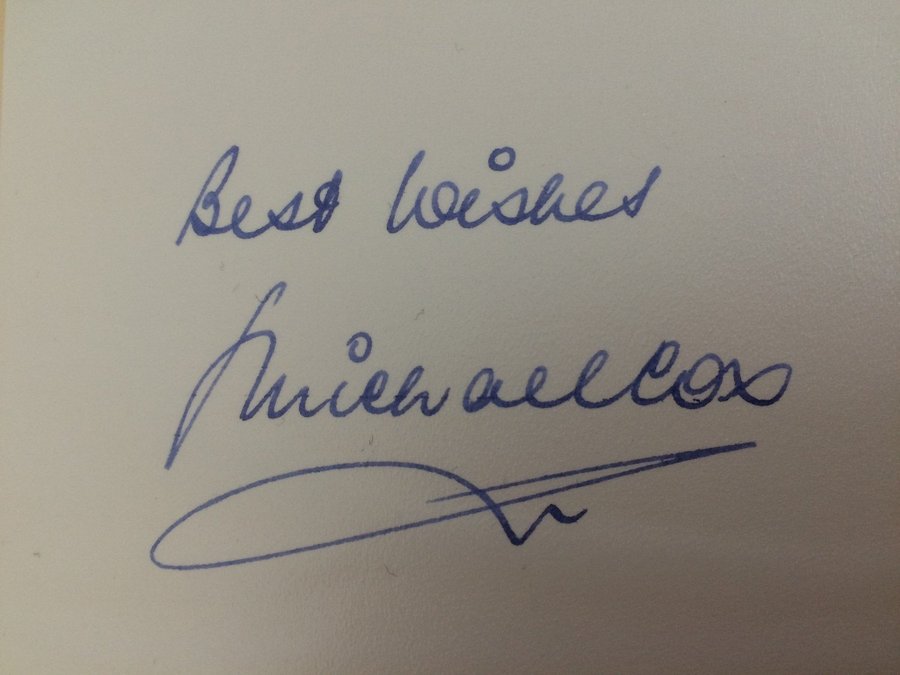 Best Wishes
Michael Cox